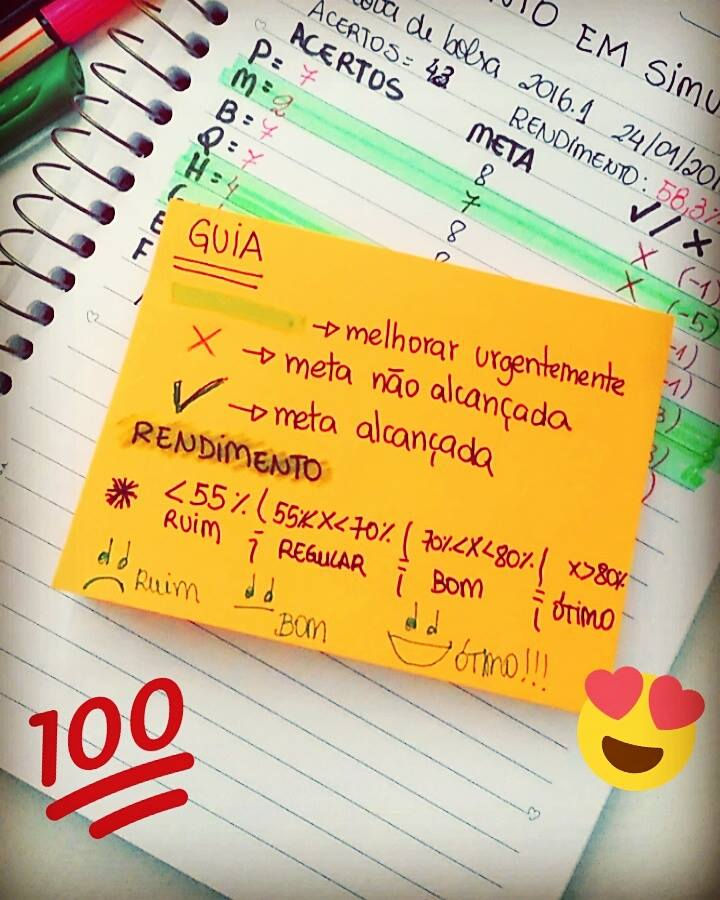 EM SIMU
de bolsa 2016.1 24/01/201
ACERTOS= 43 RENDIMENTO: 58,3%
ACERTOS META ✓/X
P= 7 8 X (-1)
M= 2 7 X (-5)
B= 7 8 -1)
Q= 7 -1)
H= 4 3)
E 3)
F )
GUIA
→ melhorar urgentemente
X → meta não alcançada
✓ → meta alcançada
RENDIMENTO
* <55% ( 55%<X<70% ( 70%<X<80% ( X>80%
RUIM REGULAR BOM ÓTIMO
RUIM BOM ÓTIMO!!!
100